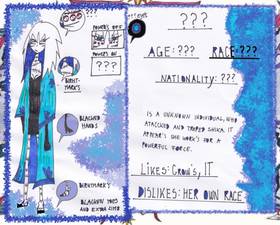 ???
POWERS OFF
POWERS ON
???
BIRTH-
MARK'S
BLACKED
HANDS
BIRTHMARK'S
???
AGE: ??? RACE: ???
NATIONALITY: ???
IS A UNKNOWN INDIVIDUAL, WHO
ATACCKED AND TRAPED SHUKA. IT
APPEAR'S SHE WORK'S FOR A
POWERFUL FORCE.
Likes: Crow's, IT
DISLIKES: HER OWN RACE